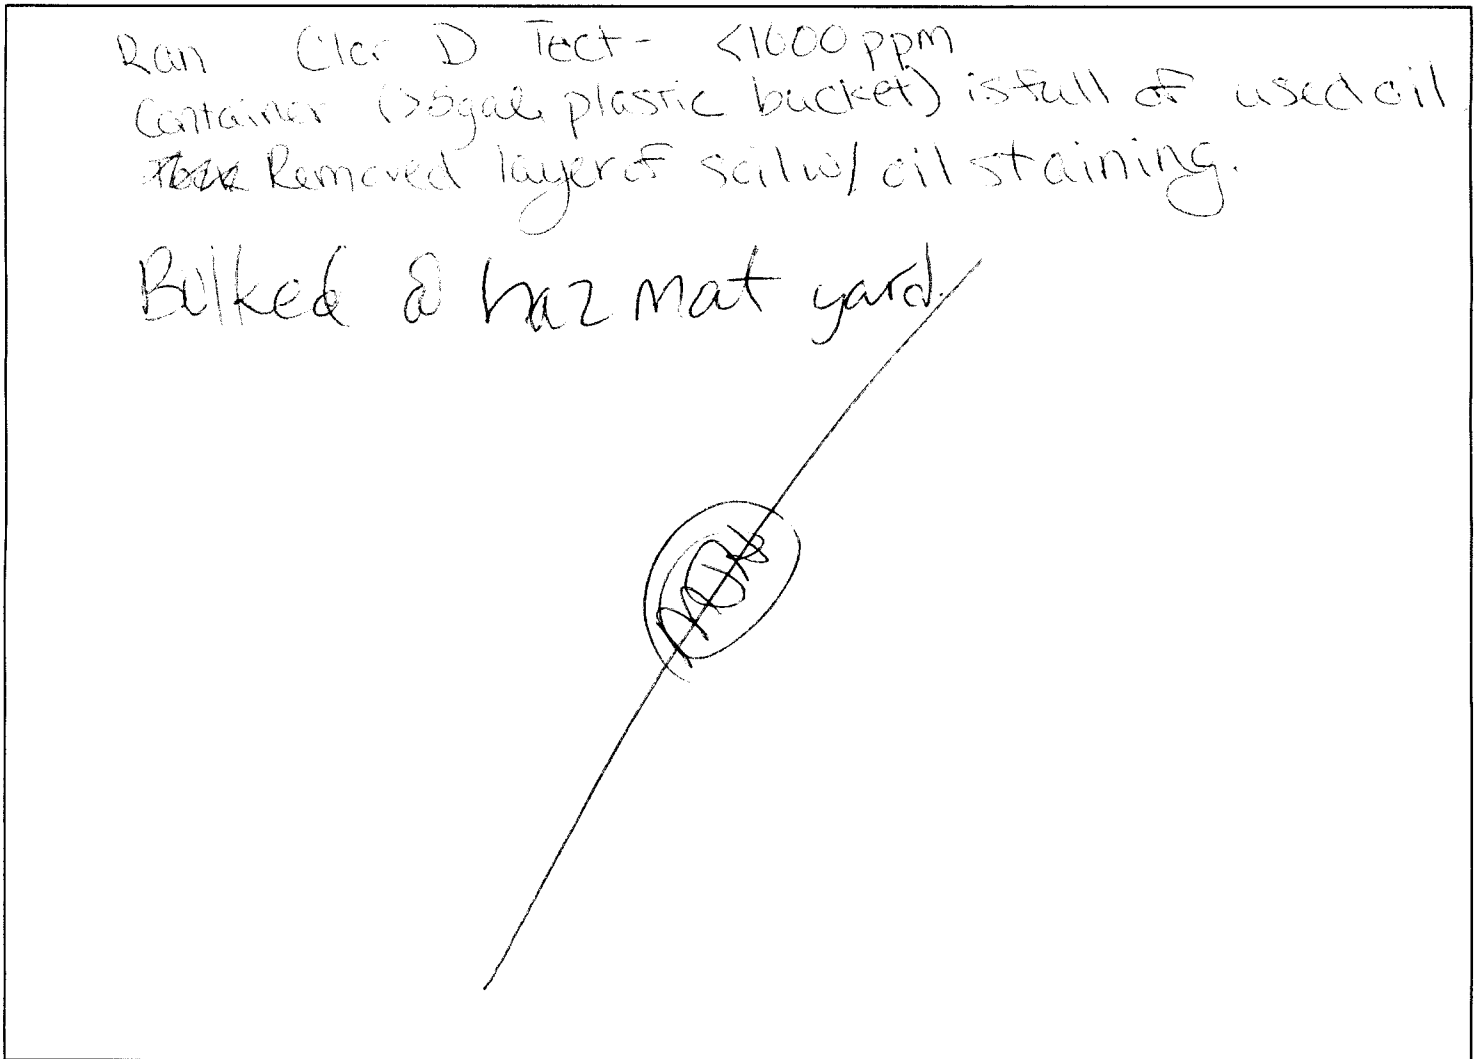 Ran Clor D Tect - <1000 ppm
Container (>5gal plastic bucket) is full of used oil
Removed layer of soil w/ oil staining.
Bulked @ haz mat yard.